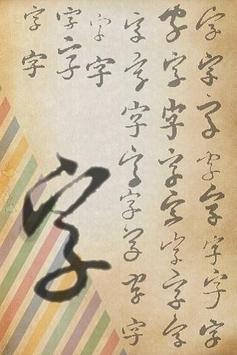 字字字字字字字字
字字字字字字字字
字字字字字字字字
字字
字字
字字
字